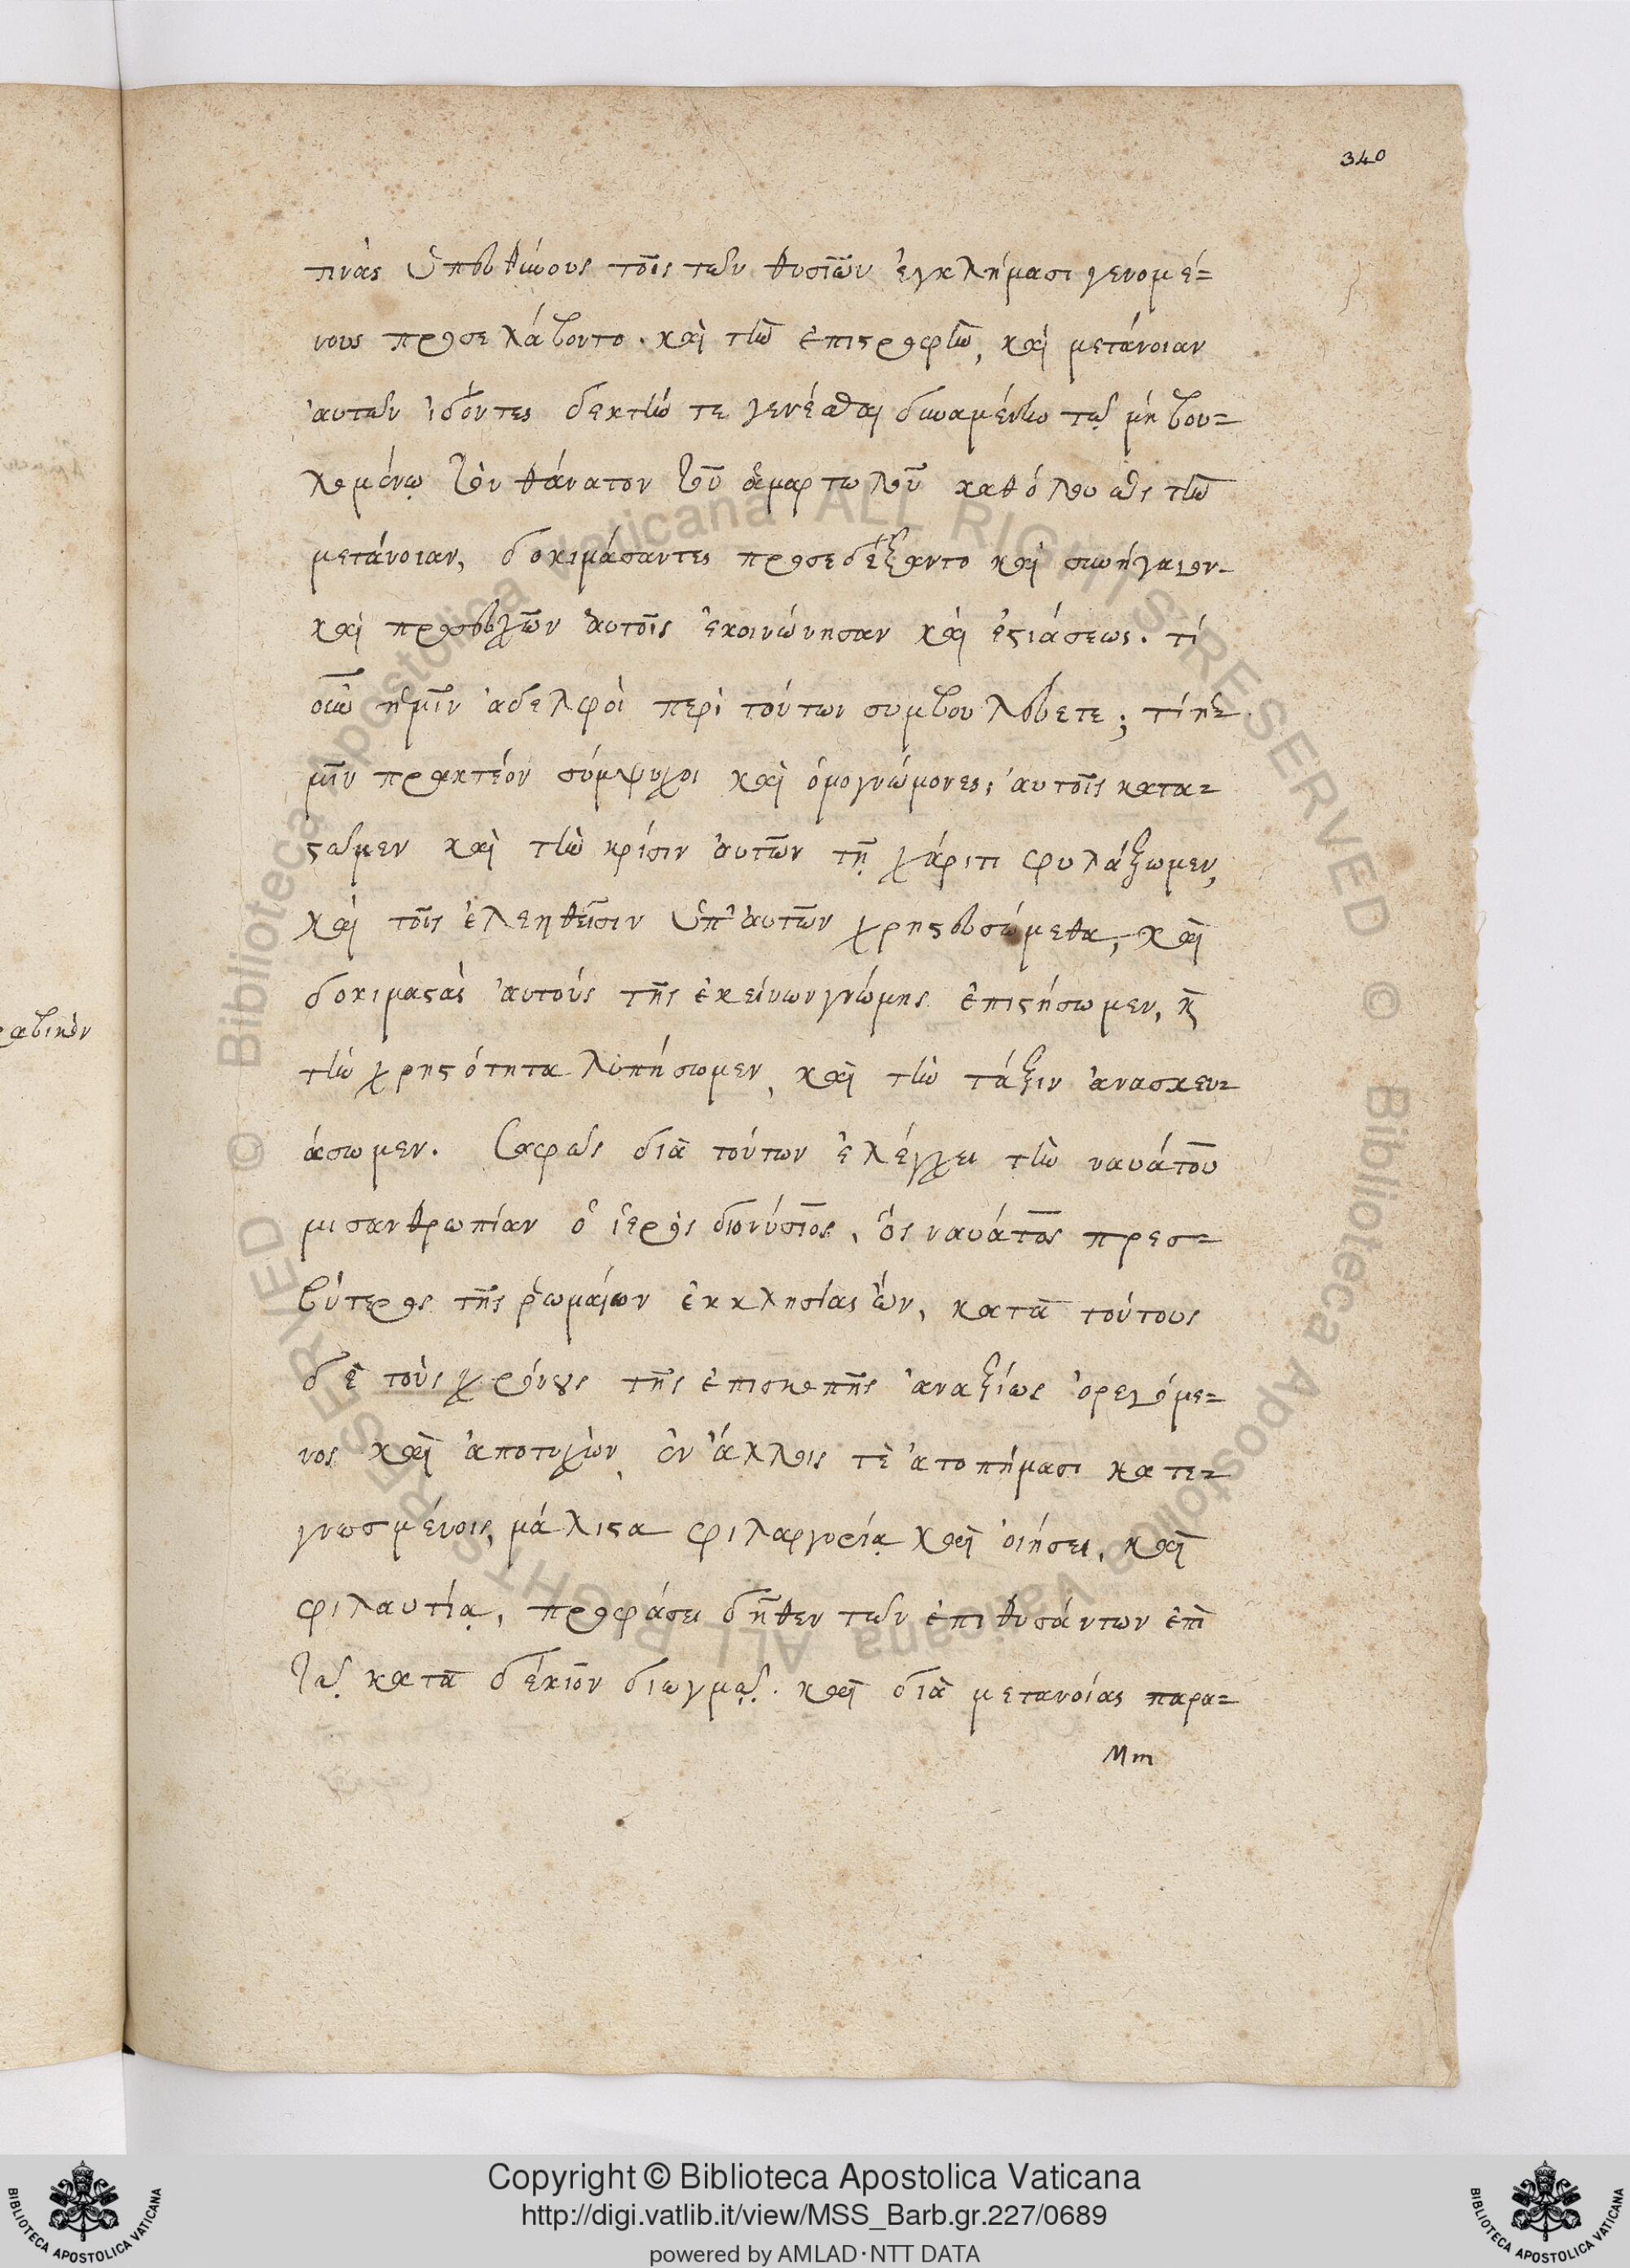 340
τινὰς ὑπευθύνους τοῖς τῶν θυσιῶν ἐγκλήμασι γενομέ-
νους προσελάβοντο. καὶ τὴν ἐπιστροφὴν, καὶ μετάνοιαν
αὐτῶν ἰδόντες δεκτήν τε γενέσθαι δυναμένην τῷ μὴ βου-
λομένῳ τὸν θάνατον τοῦ ἁμαρτωλοῦ καθόλου ὡς τὴν
μετάνοιαν, δοκιμάσαντες προσεδέξαντο καὶ συνήγαγον.
καὶ προσευχῶν αὐτοῖς ἐκοινώνησαν καὶ ἑστιάσεως. τί
οὖν ἡμῖν ἀδελφοὶ περὶ τούτων συμβουλεύετε; τί ἡ-
μῖν πρακτέον σύμψυχοι καὶ ὁμογνώμονες; αὐτοῖς κατα-
στῶμεν καὶ τὴν κρίσιν αὐτῶν τῇ χάριτι φυλάξωμεν,
καὶ τοῖς ἐλεηθεῖσιν ὑπ' αὐτῶν χρηστευσώμεθα, καὶ
δοκιμαστὰς αὐτοὺς τῆς ἐκείνων γνώμης ἐπιστήσωμεν, κ
τὴν χρηστότητα λυπήσωμεν, καὶ τὴν τάξιν ἀνασκευ-
άσωμεν. Σαφῶς διὰ τούτων ἐλέγχει τὴν ναυάτου
μισανθρωπίαν ὁ ἱερὸς διονύσιος, ὃς ναυάτος πρεσ-
βύτερος τῆς ῥωμαίων ἐκκλησίας ὢν, κατὰ τούτους
δὲ τοὺς χρόνους τῆς ἐπισκοπῆς ἀναξίως ὀρεγόμε-
νος καὶ ἀποτυχὼν, ἐν ἄλλοις τὲ ἀτοπήμασι κατε-
γνωσμένοις, μάλιστα φιλαργυρίᾳ καὶ οἰήσει, καὶ
φιλαυτίᾳ, προφάσει δῆθεν τῶν ἐπιθυσάντων ἐπὶ
τῷ κατὰ δέκιον διωγμῷ. καὶ διὰ μετανοίας παρα-
Mm
Copyright © Biblioteca Apostolica Vaticana
http://digi.vatlib.it/view/MSS_Barb.gr.227/0689
powered by AMLAD·NTT DATA